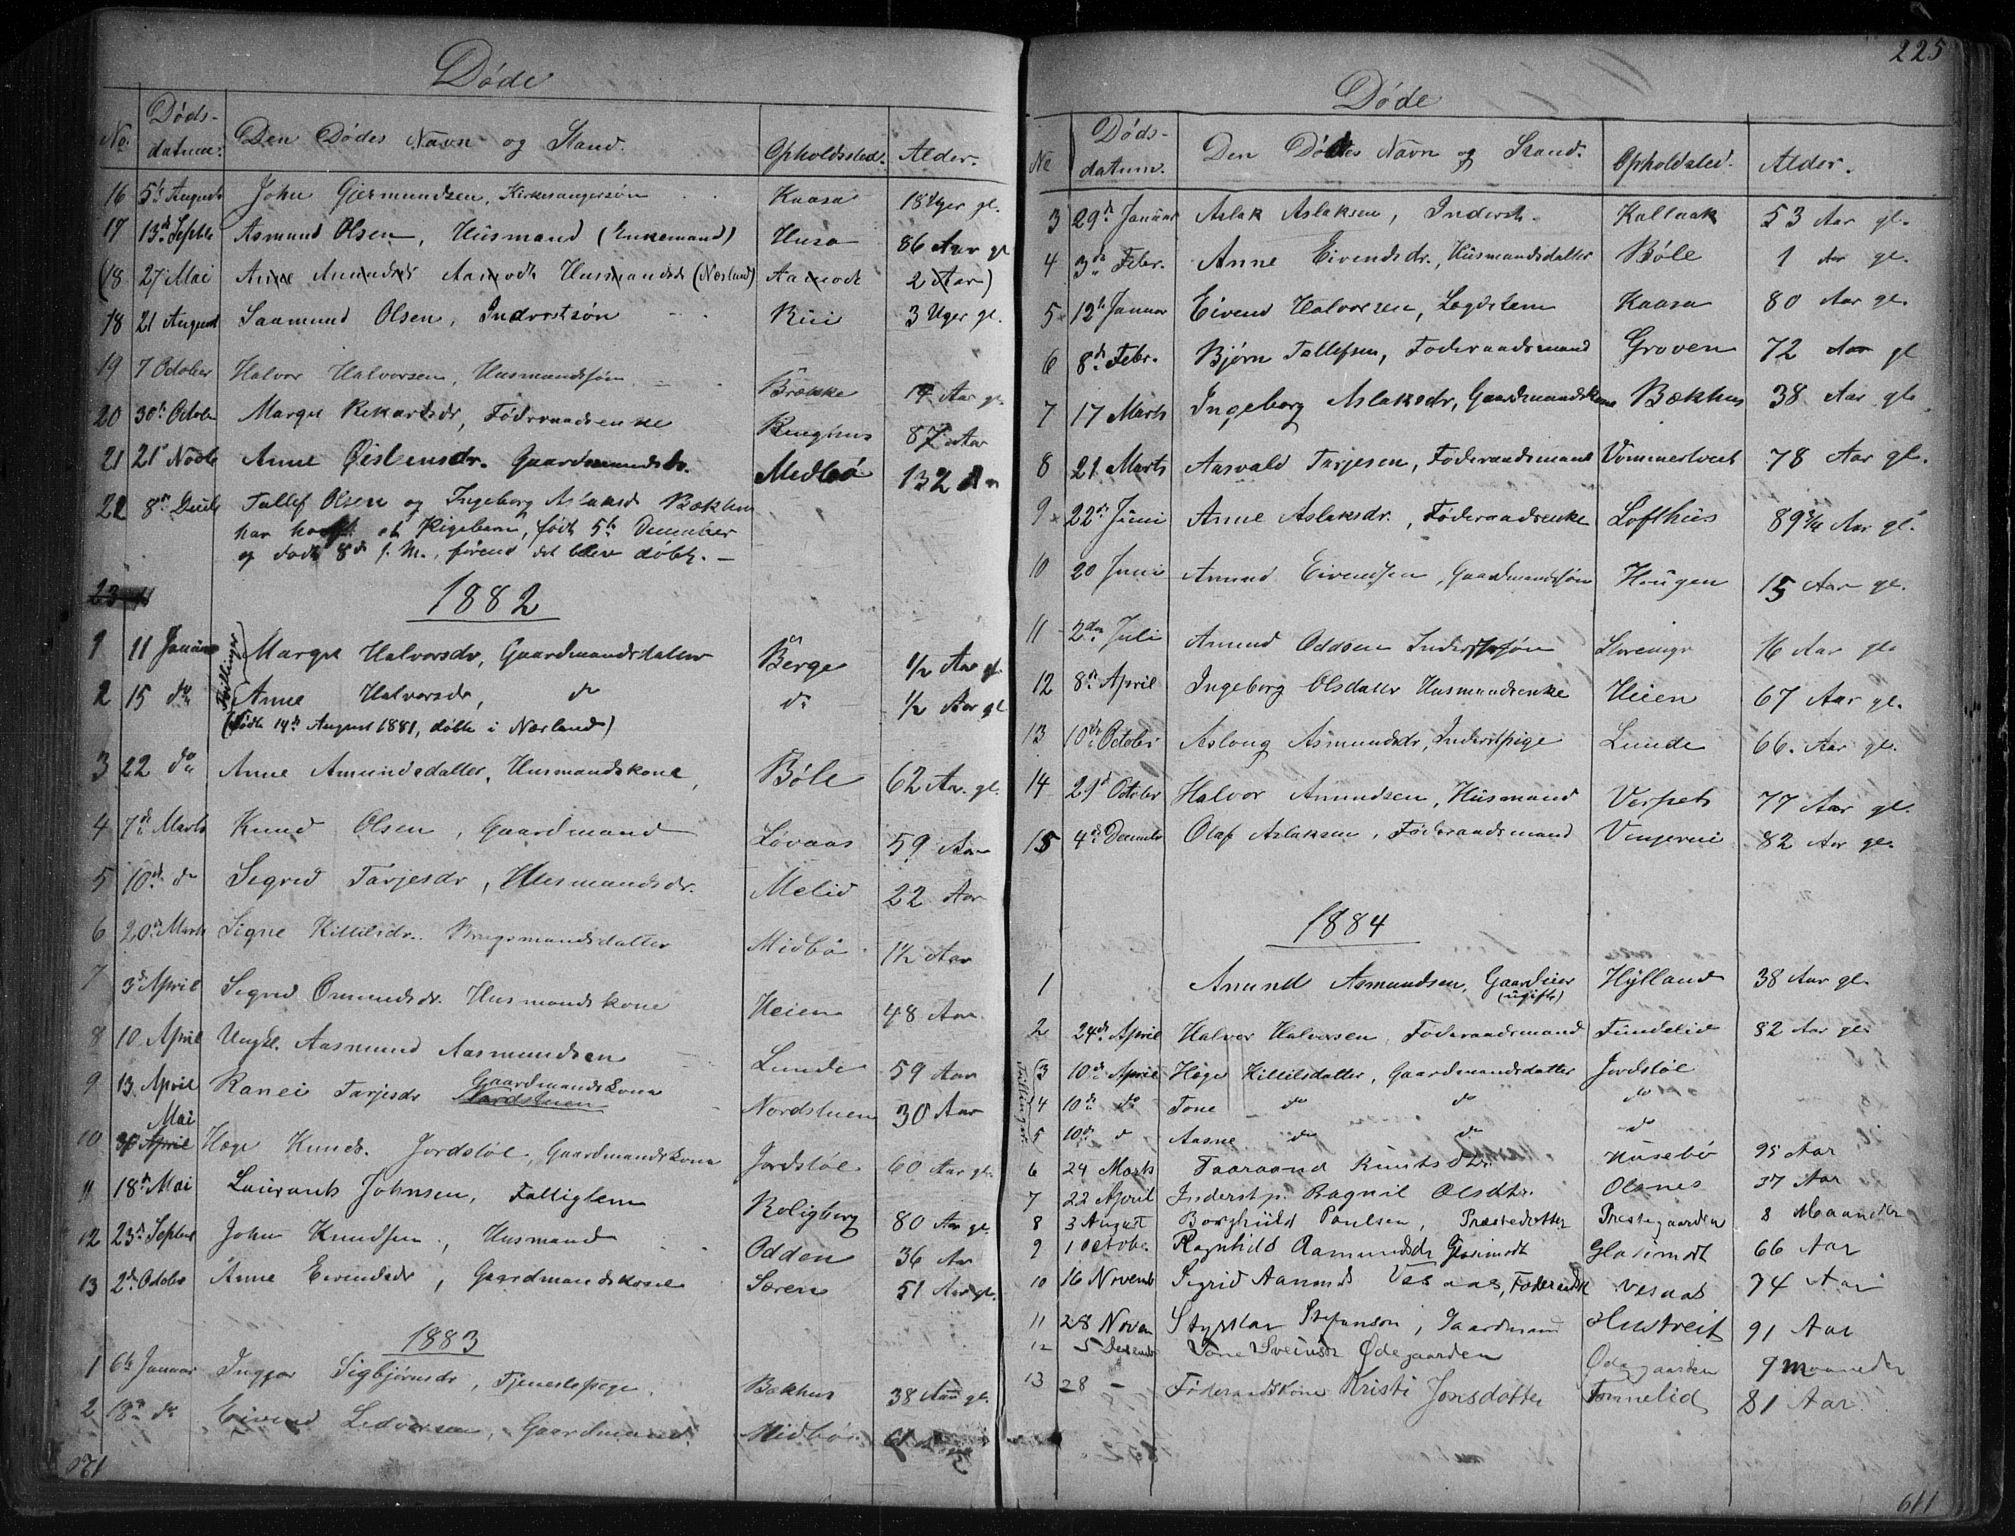 Døde
No. Døds-datum. Den Dødes Navn og Stand. Opholdssted. Alder.
16 5te August John Gjermundsen, Kirkesangersøn Kaasa 18 Uger gl.
17 13de Septbr Asmund Olsen, Husmand (Enkemand) Husa 86 Aar gl
(18 27 Mai Anne Amundsdr Aamodt Husmandsdr (Næsland) Aamodt 2 Aar)
18 21 August Saamund Olsen, Inderstsøn Rui 3 Uger gl.
19 7 October Halvor Halvorsen, Husmandssøn Brække 14 Aar gl.
20 30te Octobr Margit Rikardsdr, Føderaadsenke Ringhus 87 Aar
21 21de Novbr Anne Øisteinsdr. Gaardmandsdr. Midbø 13 Aar
22 8de Decbr Tallef Olsen og Ingeborg Aslaksdr Bækhus
har havt et Pigebarn, født 5te December
og død 8de s. M., førend det blev døbt. —
23
1882
1 11 Januar Margit Halvorsdr, Gaardmandsdatter Berge ½ Aar gl.
Tvillinger
2 15 do Anne Halvorsdr, do do ½ Aar gl
(Fødte 14de August 1881, døbte i Næsland)
3 22 do Anne Amundsdatter, Husmandskone, Bøle 62 Aar gl.
4 7de Marts Knud Olsen, Gaardmand Løvaas 59 Aar
5 10de do Sigrid Tarjesdr, Husmandsdr. Melid 22 Aar
6 20de Marts Signe Kittilsdr. Brugsmandsdatter Midbø 1½ Aar
7 3de April Sigrid Omundsdr. Husmandskone Heien 48 Aar
8 10 April Ungk. Aasmund Aasmundsen Lunde 59 Aar
9 13 April Ranei Tarjesdr Gaardmandskone Nordstuen Nordstuen 30 Aar
Mai
10 April Hæge Knuds. Jordstøl, Gaardmandskone Jordstøl 60 Aar gl.
11 18de Mai Laurants Johnsen, Fattiglem Roligborg 80 Aar gl.
12 23de Septbr John Knudsen, Husmand Odden 36 Aar
13 2de Octobr Anne Eivendsdr, Gaardmandskone Søren 51 Aar gl.
1883
1 6te Januar Ingjær Sigbjørnsdr, Tjenestepige. Bækhus 38 Aar gl.
2 18de do Eivend Ledvorsen, Gaardmand. Midbø 61
071
225
Døde
No Døds-datum. Den Dødes Navn og Stand. Opholdssted. Alder.
3 29de Januar Aslak Aslaksen, Inderst. Kallaak 53 Aar gl.
4 3de Febr. Anne Eivendsdr., Husmandsdatter Bøle 1 Aar gl.
5 12te Januar Eivend Halvorsen, Lægdslem Kaasa 80 Aar gl.
6 8de Febr. Bjørn Tallefsen, Føderaadsmand Groven 72 Aar gl
7 17 Marts Ingeborg Aslaksdr, Gaardmandskone Bækhus 38 Aar gl.
8 21 Marts Aasvald Tarjesen, Føderaadsmand Vimmertveit 78 Aar gl.
9 22de Juni Anne Aslaksdr., Føderaadsenke Lofthus 89¾ Aar gl.
10 20 Juni Amund Eivendsen, Gaardmandssøn Haugen 15 Aar gl.
11 2den Juli Amund Oddsen Inderstsøn 16 Aar gl
12 8de April Ingeborg Olsdatter Husmandsenke Heien 67 Aar gl.
13 10de October Aslaug Asmundsdr, Inderstpige Lunde 66. Aar gl.
14 21de October Halvor Amundsen, Husmand Verpet 77 Aar gl
15 4de Decembr Olaf Aslaksen, Føderaadsmand Vinjerui 82 Aar gl.
1884
1 Amund Asmundsen, Gaardeier Hylland 38 Aar gl.
(ugift)
2 24de April Halvor Halvorsen, Føderaadsmand Funnelid 82 Aar gl.
Trillinger
3 10de April Hæge Kittilsdatter, Gaardmandsdatter Jordstøl
4 10de do Tone do do do
5 10de d Aasne do do do
6 24 Marts Taaraand Knutsdtr. Husebø 95 Aar
7 22 April Inderstp. Ragnil Olsdtr. Olsnes 37 Aar
8 3 August Borghild Paulsen, Præstedotter Prestegaarden 8 Maaneder
9 1 octob. Ragnhild Aamundsdr Glosimodt Glosimodt 66 Aar
10 16 Novemb Sigrid Aanunds Vesaas, Føderaadsk Vesaas 74 Aar
11 28 Novem Styrkar Stefansøn, Gaardmand Hustveit 91 Aar
12 5 Decemb Tone Sveinsdr Ødegaarden Ødegaarden 9 maaneder
13 28 — Føderaadskone Kristi Jonsdotter Funnelid 81 Aar.
611